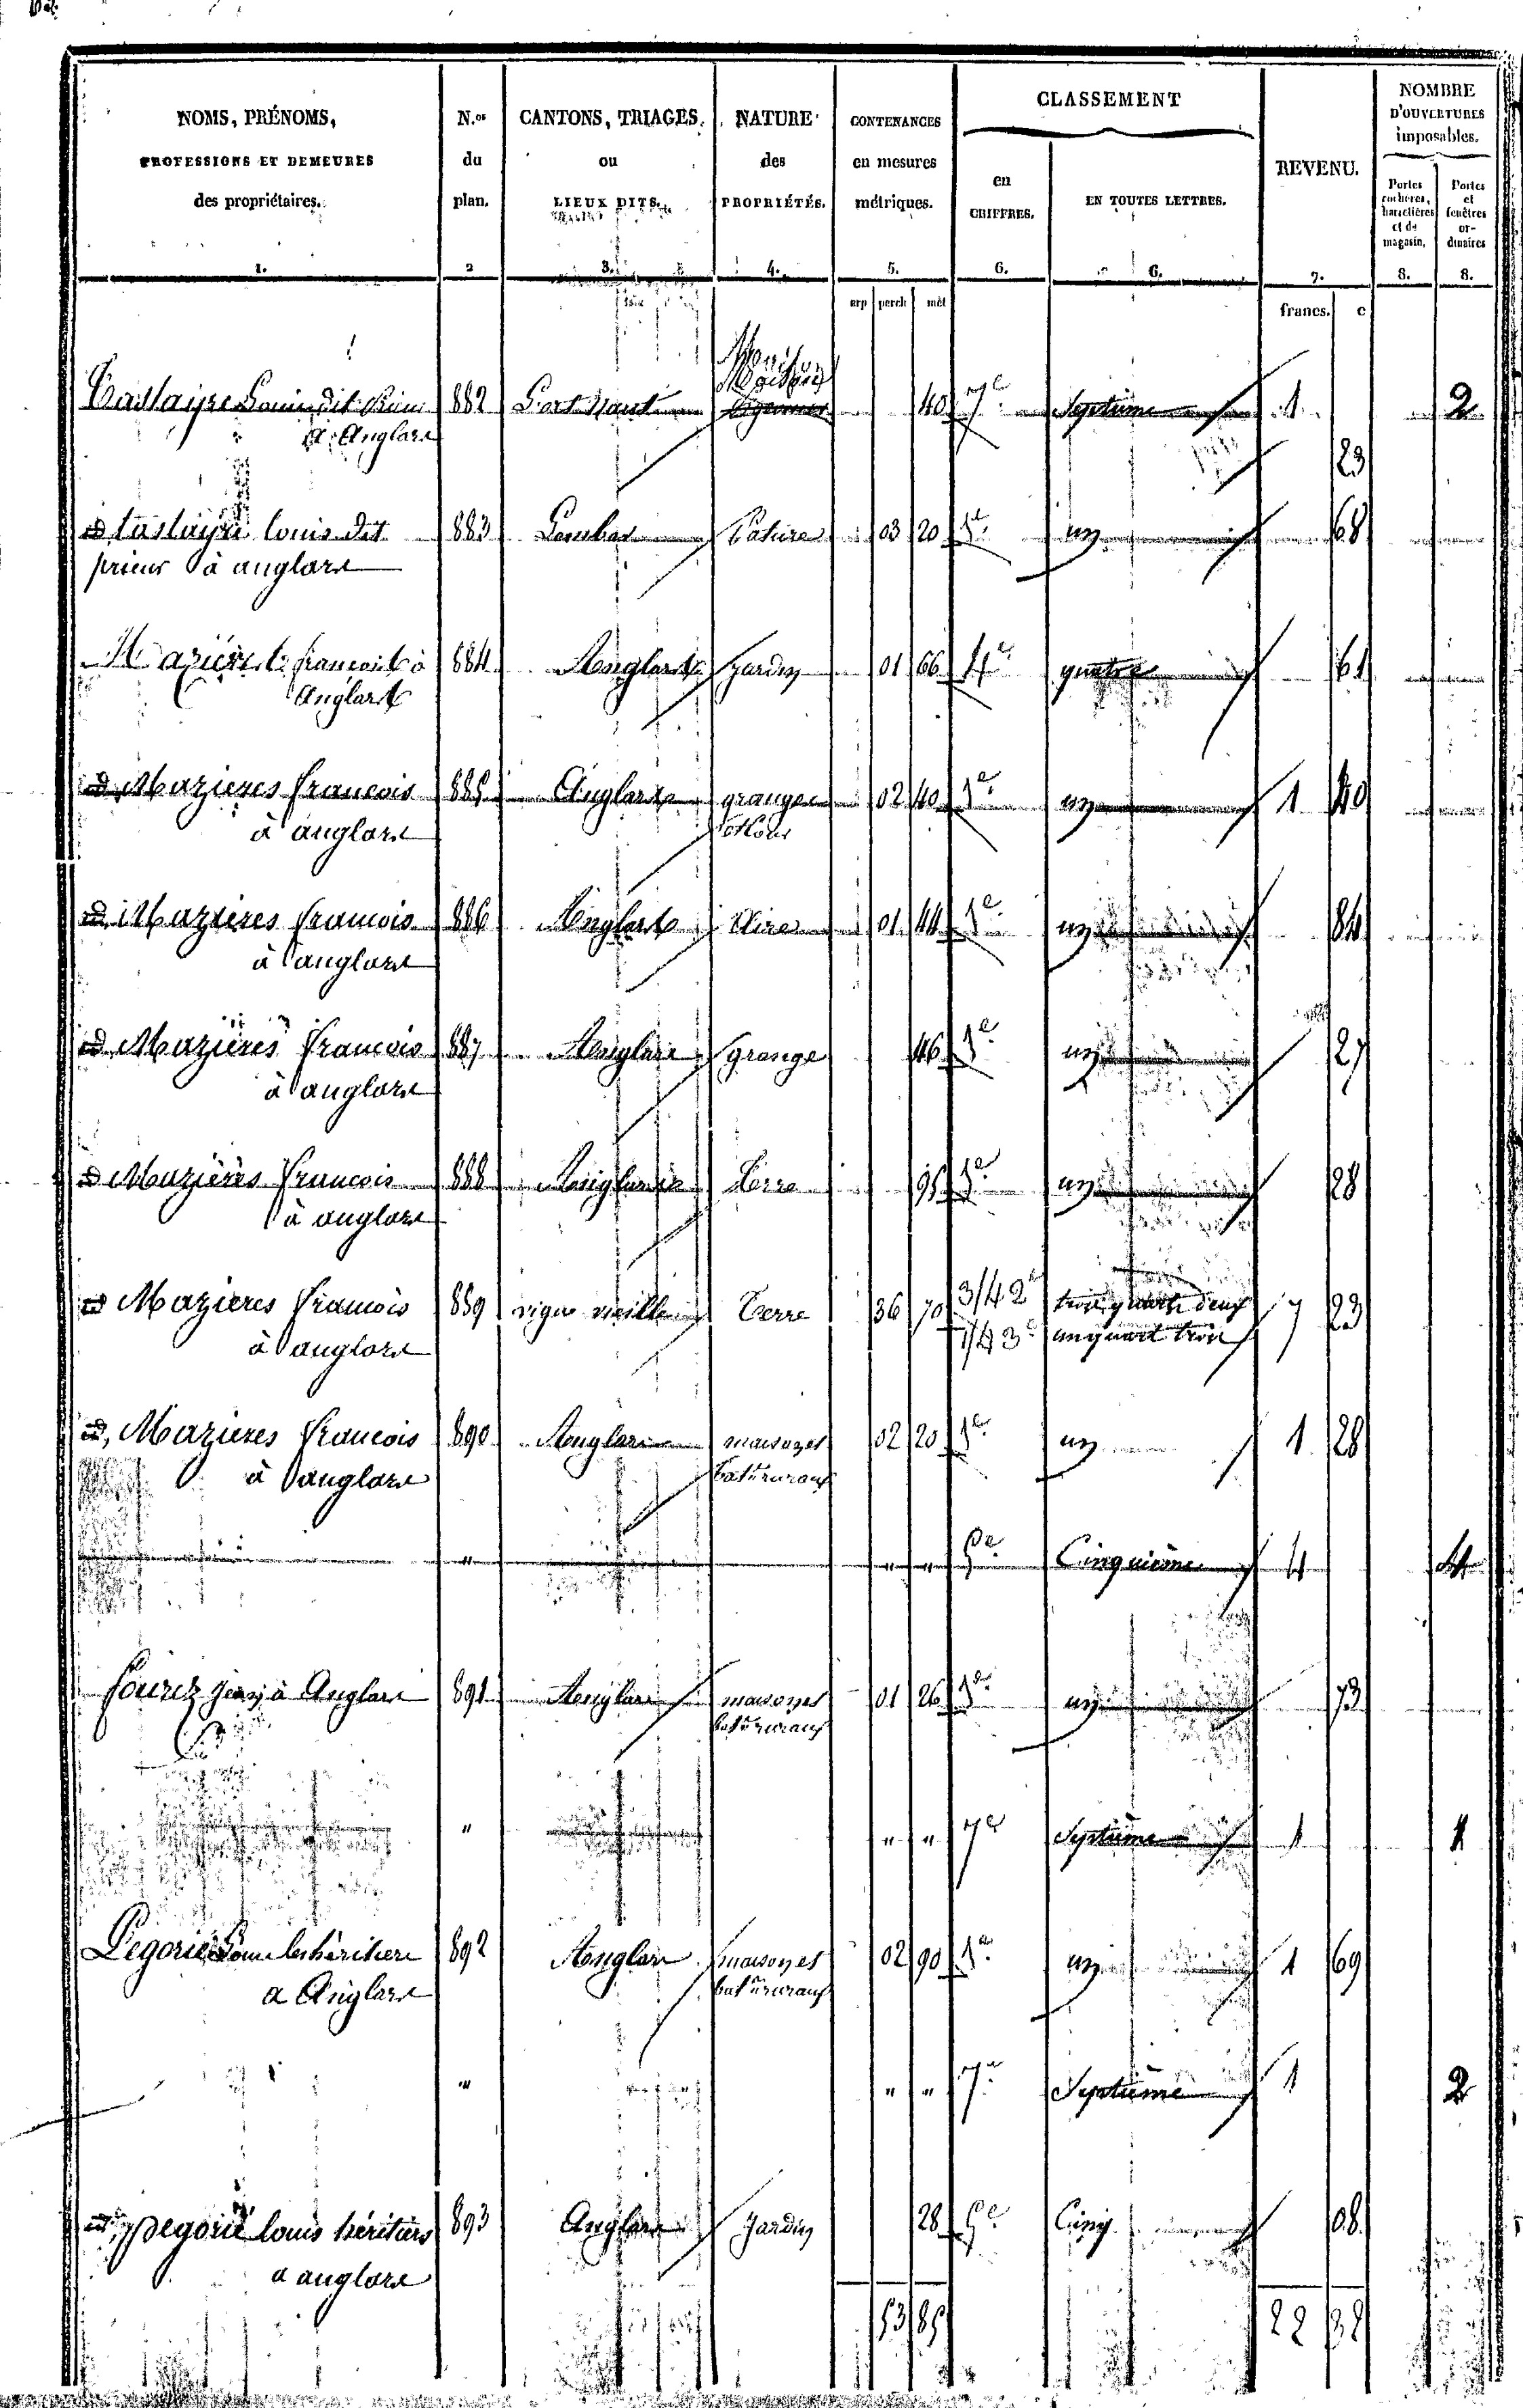 NOMS, PRÉNOMS, PROFESSIONS ET DEMEURES des propriétaires. 1.
N.os du plan. 2
CANTONS, TRIAGES, ou LIEUX DITS. 3.
NATURE des PROPRIÉTÉS. 4.
CONTENANCES en mesures métriques. 5.
CLASSEMENT
en CHIFFRES. 6.
EN TOUTES LETTRES. 6.
REVENU. 7.
NOMBRE D'OUVERTURES imposables.
Portes cochères, charretières et de magasin, 8.
Portes et fenêtres ordinaires 8.
arp perch mèt francs. c
882 Maison 40 7e Septième 1 2
à Anglars
23
tastayre louis dit 883 Lombar Pature 03 20 1e un 68
prieur à anglars
françois à 884 Anglars jardin 01 66 4e quatre 61
Anglars
id Mazieres francois 885 Anglars grange 02 40 1e un 1 40
à anglars
id Mazieres francois 886 Anglars Aire 01 44 1e un 84
à anglars
id Mazieres francois 887 Anglars grange 46 1e un 27
à anglars
id Mazières francois 888 Anglars Terre 95 1e un 28
à anglars
id Mazieres francois 889 vigne vieille Terre 36 70 3/4 2e trois quarts deux 7 23
à anglars 1/4 3e un quart trois
id, Mazieres francois 890 Anglars maison et 02 20 1e un 1 28
à anglars bat. ruraux
" " " 5e Cinquième 4 4
à Anglars 891 Anglars maison et 01 26 1e un 73
bat. ruraux
" " " 7e Septième 1 1
Pegorie héritiers 892 Anglars maison et 02 90 1e un 1 69
a Anglars bat. ruraux
" " " 7e Septième 1 2
id, pegorié louis héritiers 893 Anglars Jardin 28 5e Cinq 08
a anglars
53 85 22 32